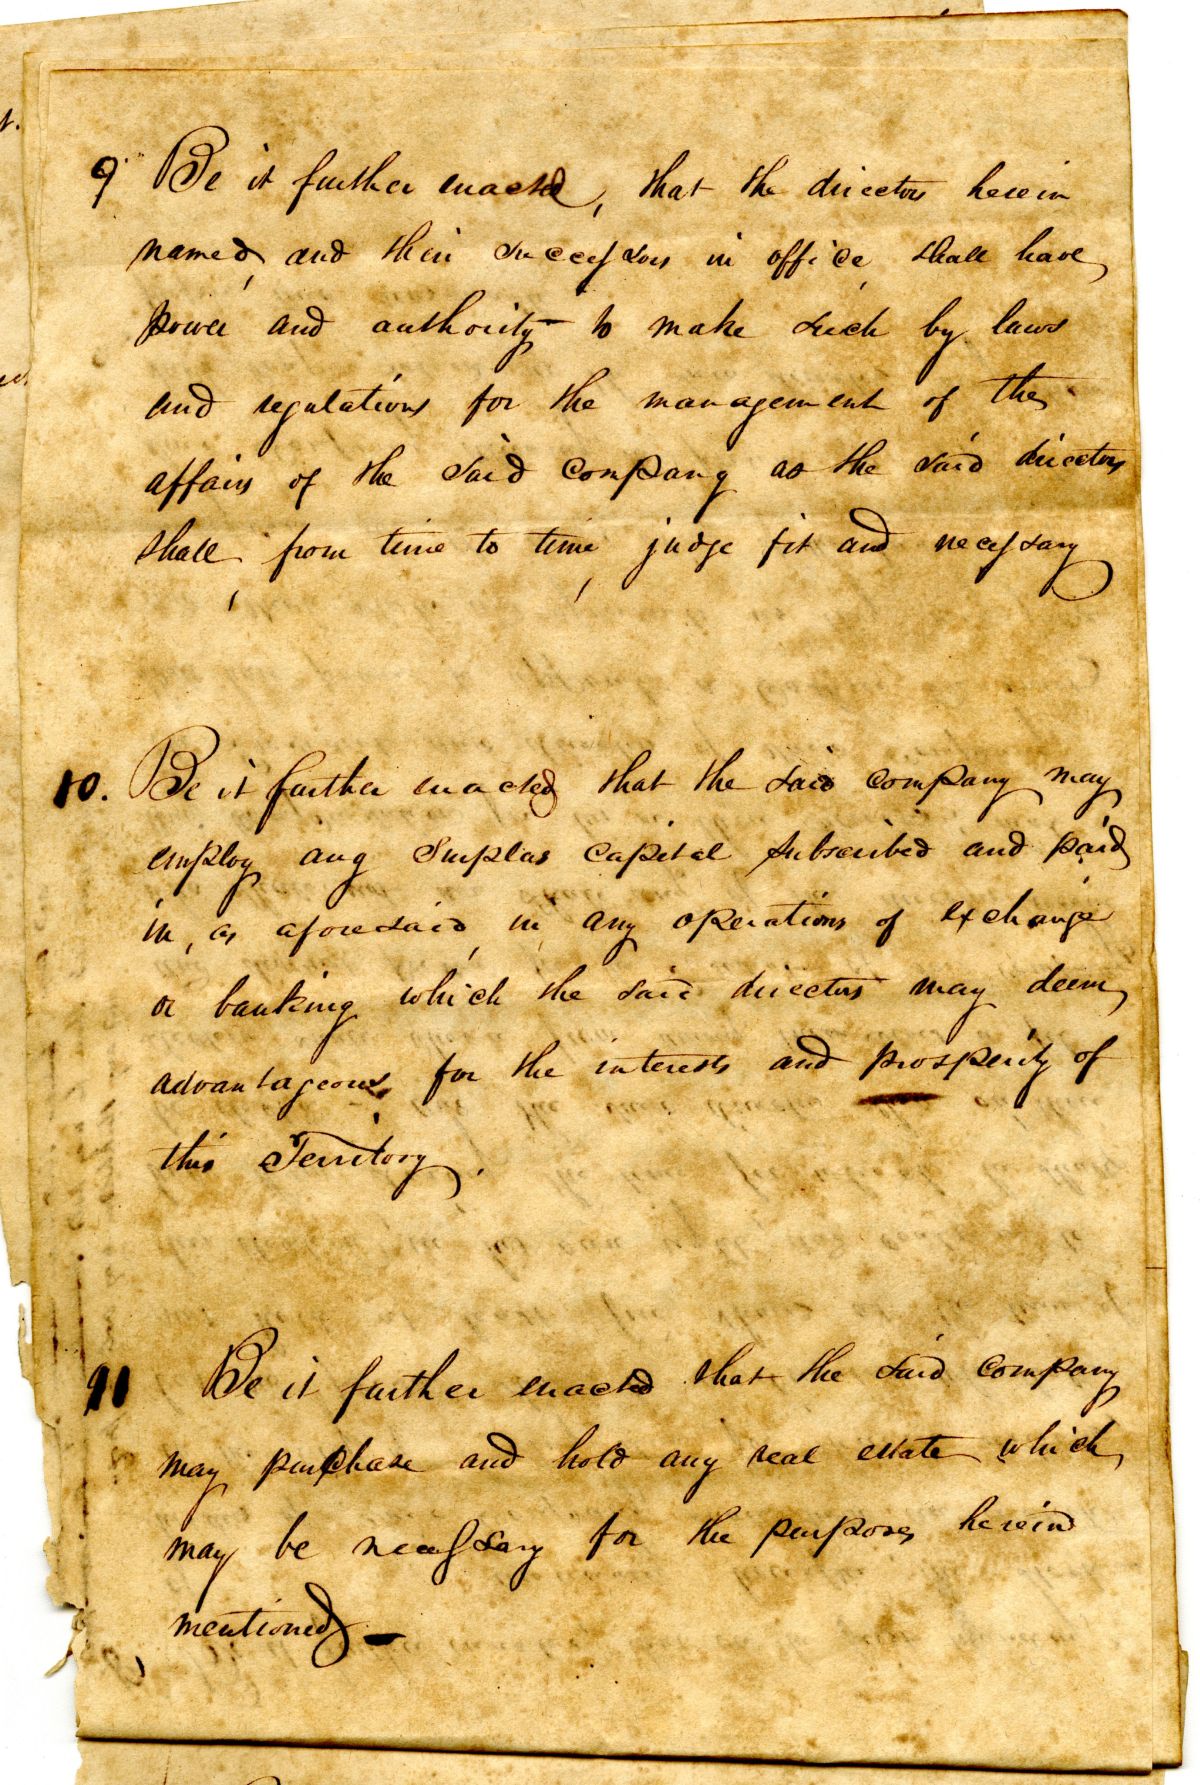 9 Be it further enacted, that the directors herein
named, and their successors in office, shall have
power and authority to make such by laws
and regulations for the management of the
affairs of the said company as the said directors
shall, from time to time, judge fit and necessary
10. Be it further enacted that the said company may
employ any surplus capital subscribed and paid
in, as aforesaid, in any operations of exchange
or banking which the said directors may deem
advantageous, for the interests and prosperity of
this Territory.
11 Be it further enacted that the said company
may purchase and hold any real estate which
may be necessary for the purposes herein
mentioned